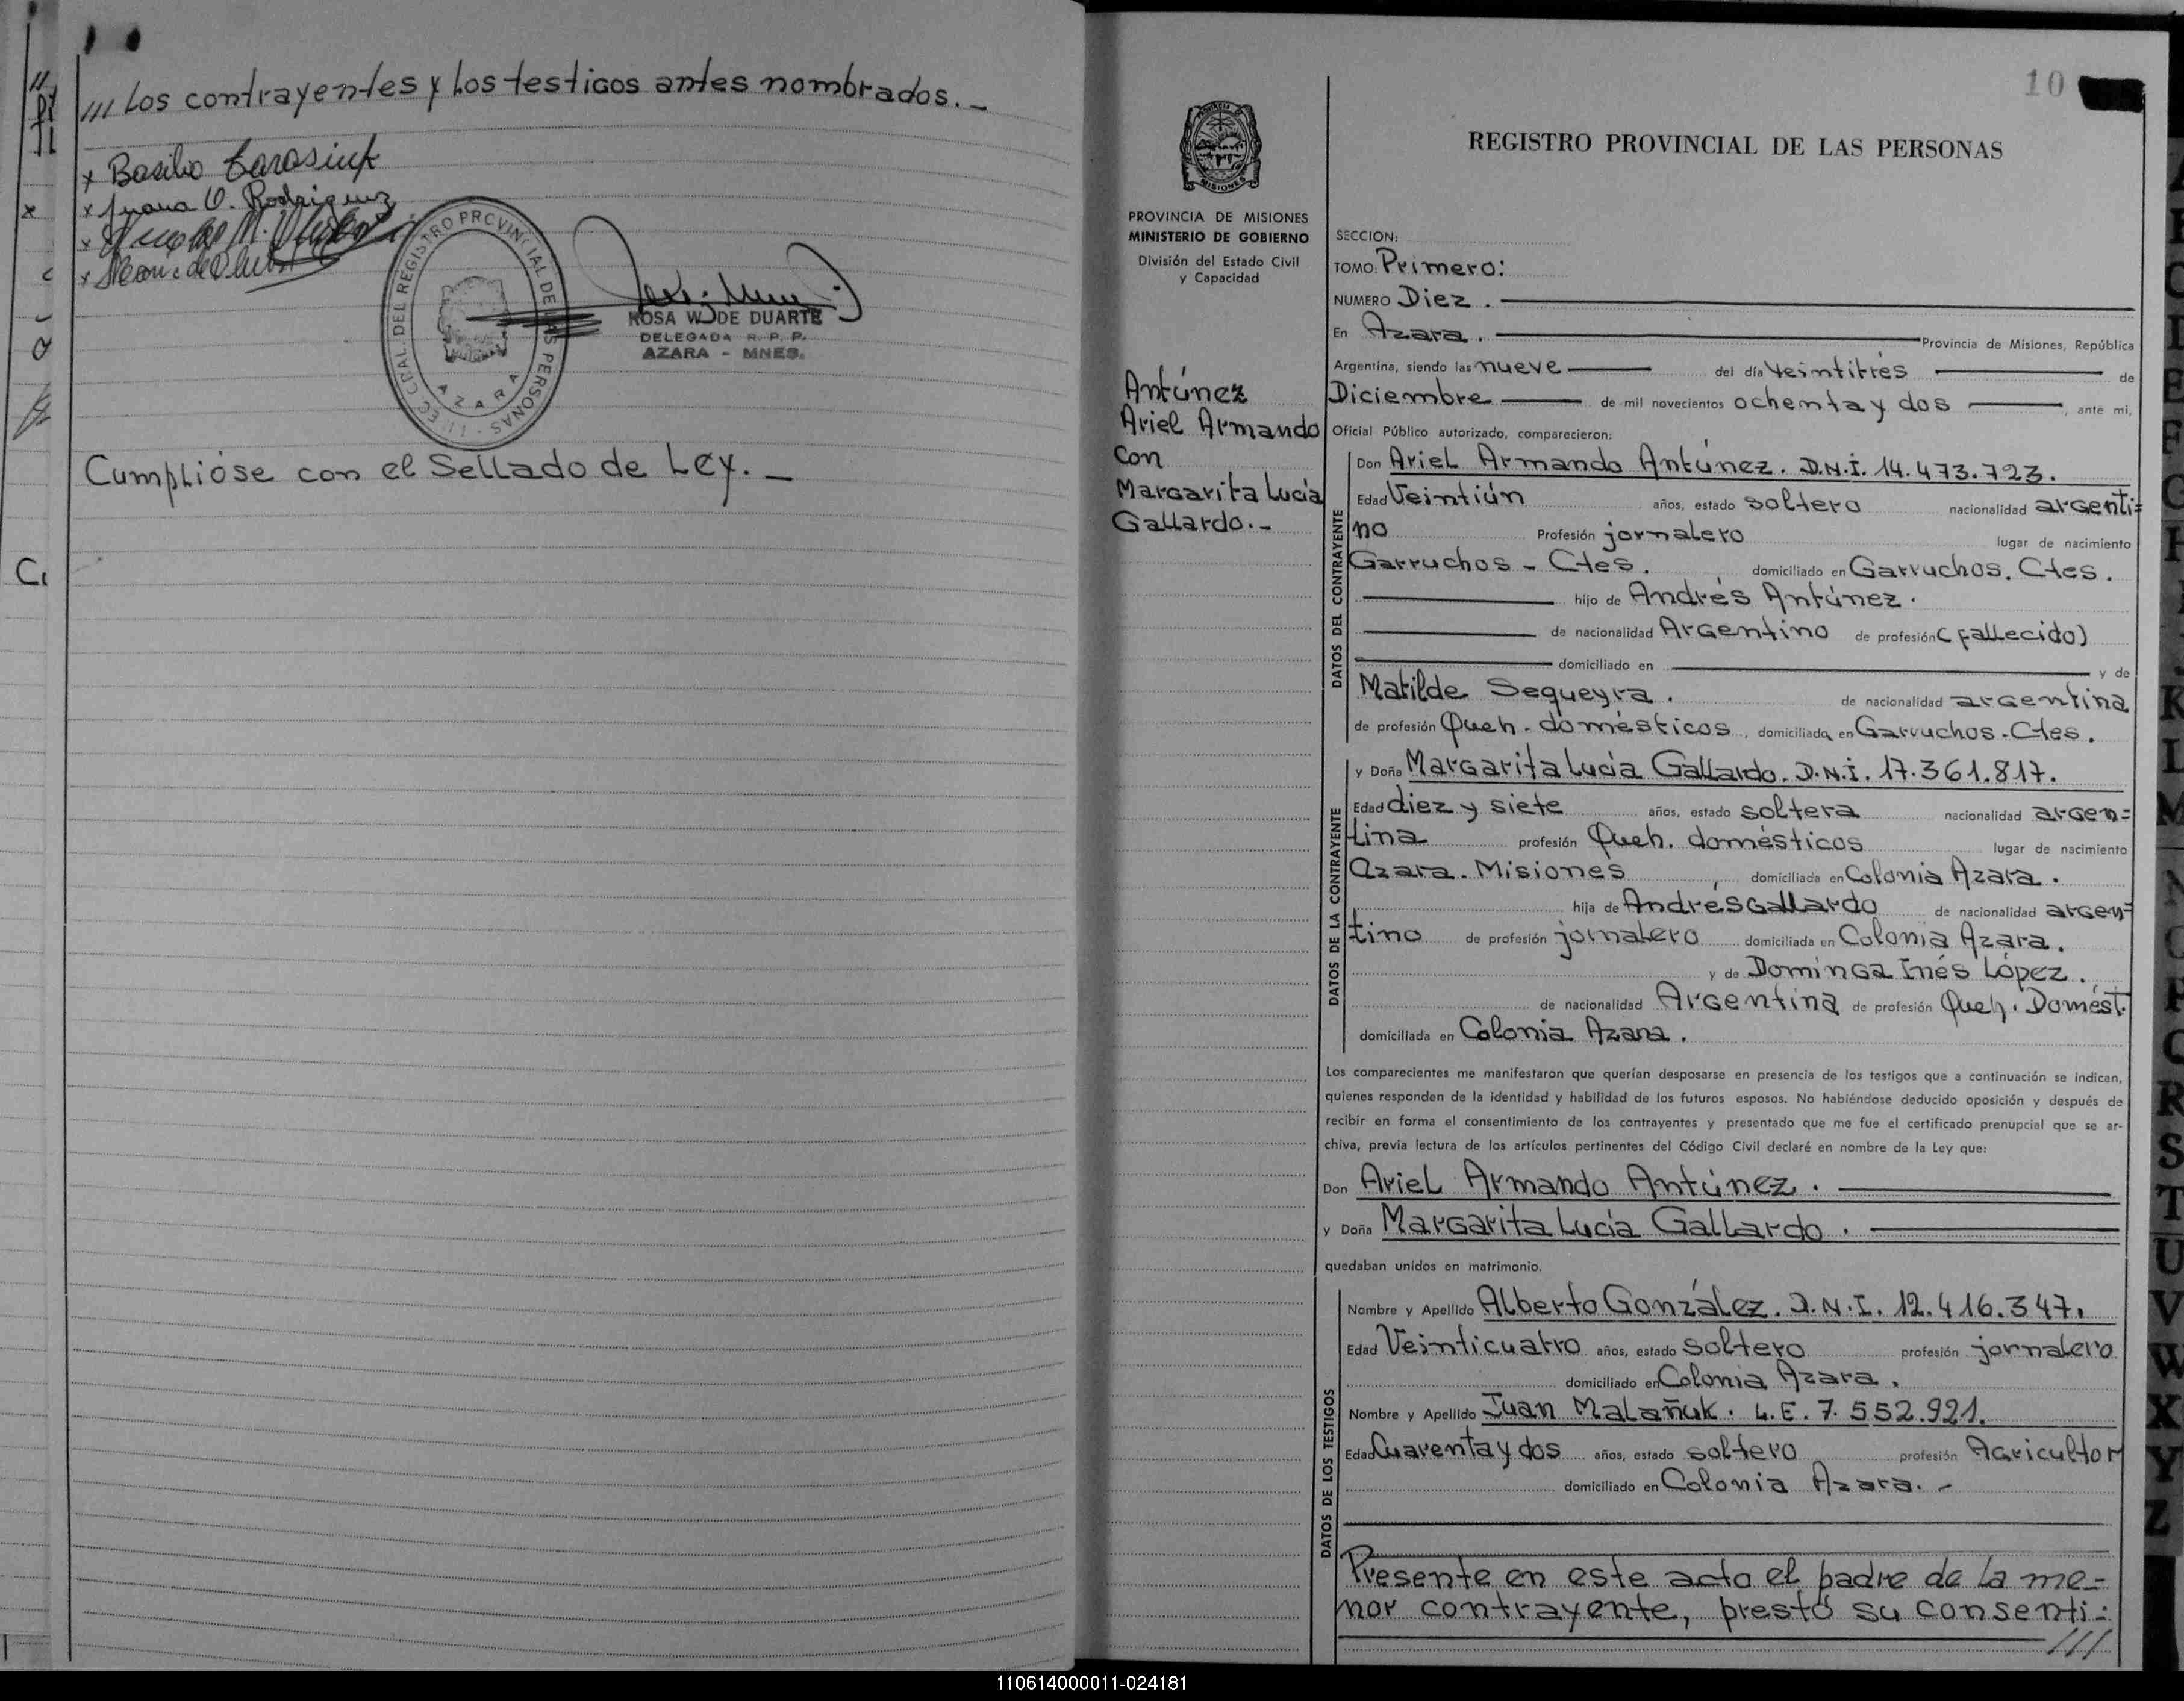 /// Los contrayentes y los testigos antes nombrados._
x Basilio Tarasiuk
x Juana O. Rodriguez
x
x
REGISTRO PROVINCIAL DE LAS PERSONAS
AZARA
ROSA W. DE DUARTE
DELEGADA R. P. P.
AZARA - MNES.
Cumplióse con el Sellado de Ley._
10
PROVINCIA DE MISIONES
MINISTERIO DE GOBIERNO
División del Estado Civil
y Capacidad
Antúnez
Ariel Armando
Con
Margarita Lucía
Gallardo.-
REGISTRO PROVINCIAL DE LAS PERSONAS
SECCION:
TOMO: Primero:
NUMERO Diez.
En Azara. Provincia de Misiones, República
Argentina, siendo las nueve del día Veintitrés de
Diciembre de mil novecientos ochenta y dos, ante mi,
Oficial Público autorizado, comparecieron:
DATOS DEL CONTRAYENTE
Don Ariel Armando Antúnez. D.N.I. 14.473.723.
Edad Veintiún años, estado soltero nacionalidad argenti=
no Profesión jornalero lugar de nacimiento
Garruchos - Ctes. domiciliado en Garruchos. Ctes.
hijo de Andrés Antúnez.
de nacionalidad Argentino de profesión (fallecido)
domiciliado en y de
Matilde Sequeyra. de nacionalidad argentina
de profesión Queh. domésticos, domiciliada en Garruchos-Ctes.
DATOS DE LA CONTRAYENTE
y Doña Margarita Lucía Gallardo. D.N.I. 17.361.817.
Edad diez y siete años, estado soltera nacionalidad argen=
tina profesión Queh. domésticos lugar de nacimiento
Azara. Misiones, domiciliada en Colonia Azara.
hija de Andrés Gallardo de nacionalidad argen=
tino de profesión jornalero domiciliada en Colonia Azara.
y de Dominga Inés López.
de nacionalidad Argentina de profesión Queh. Domést.
domiciliada en Colonia Azara.
Los comparecientes me manifestaron que querían desposarse en presencia de los testigos que a continuación se indican,
quienes responden de la identidad y habilidad de los futuros esposos. No habiéndose deducido oposición y después de
recibir en forma el consentimiento de los contrayentes y presentado que me fue el certificado prenupcial que se ar-
chiva, previa lectura de los artículos pertinentes del Código Civil declaré en nombre de la Ley que:
Don Ariel Armando Antúnez.
y Doña Margarita Lucía Gallardo.
quedaban unidos en matrimonio.
DATOS DE LOS TESTIGOS
Nombre y Apellido Alberto González. D.N.I. 12.416.347.
Edad Veinticuatro años, estado Soltero profesión jornalero
domiciliado en Colonia Azara.
Nombre y Apellido Juan Malañuk. L.E. 7.552.921.
Edad Cuarenta y dos años, estado soltero profesión Agricultor
domiciliado en Colonia Azara.-
Presente en este acto el padre de la me=
nor contrayente, prestó su consenti=
///
110614000011-024181